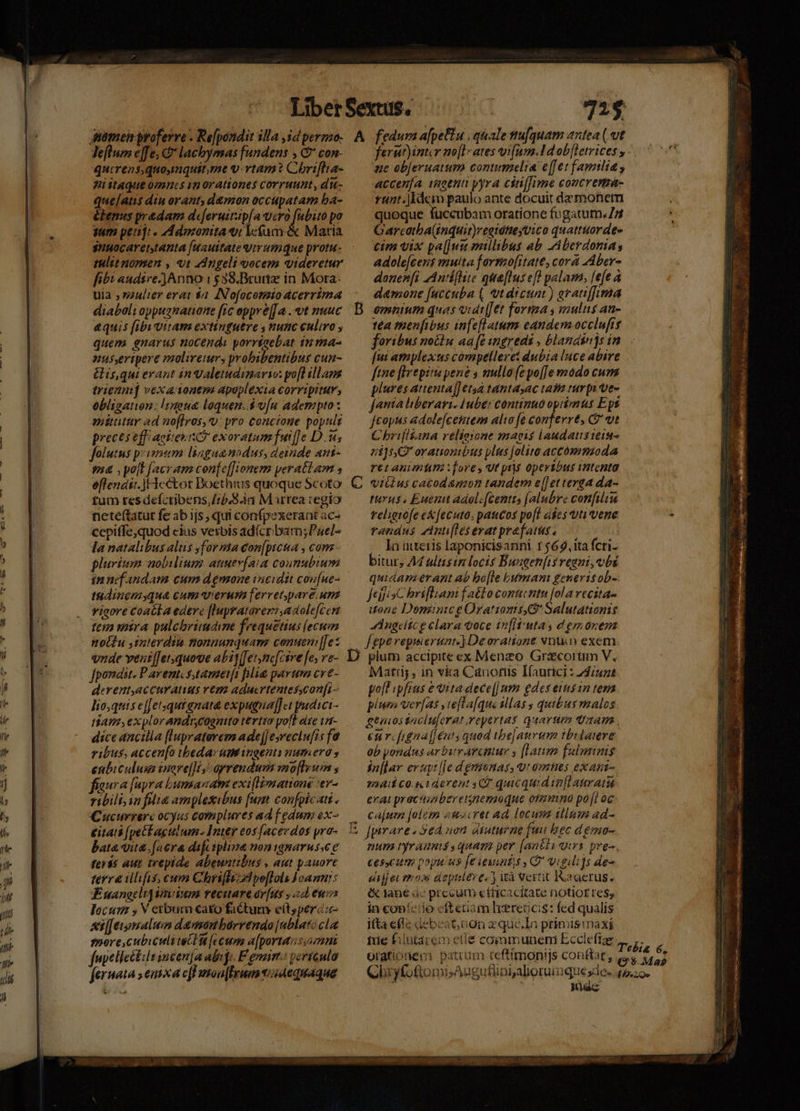 Liber Sextus. 725
nomen proferre. Respondit illa, id permo-
lestum esse, & lachymas fundens, & con-
querens, quos, inquit, me vertam? Christia-
ni itaque omnes in orationes corruunt, diu-
que satis diu orant, dæmon occupatam ha-
ctenus prædam deseruit: ipsa vero subito po
tum petijt. Admonita vt Iesum & Maria
inuocaret, tanta suauitate vtrumque protu-
lit nomen, vt Angeli vocem videretur
sibi audire.] Anno 1538. Brutiæ in Mora-
uia, mulier erat in Nosocomio acerrima
diaboli oppugnatione sic oppressa, vt nunc
aquis sibi vitam extinguere, nunc cultro,
quem gnarus nocendi porrigebat in ma-
nus, eripere moliretur, prohibentibus cun-
ctis, qui erant in valetudinario: post illam
triennij vexationem apoplexia corripitur,
obligatione linguæ loquendi vsu adempto:
mittitur ad nostros, & pro concione populi
preces est
solutus primum linguæ nodus, deinde ani-
mæ, post sacram confessionem peractam,
ostendit.] Hector Boethius quoque Scoto
rum res describens, lib.8. in Marrea regio
ne testatur se ab ijs, qui conspexerant ac-
cepisse, quod eius verbis adscribam; Puel-
la natalibus alijs, forma conspicua, com-
plurium nobilium auersata connubium
in nefandam cum dæmone incidit consue-
tudinem, quæ cum vterum ferret, parentum
rigore coacta edere stupratorem, adolescen
tem mira pulchritudine frequentius secum
noctu, interdiu nonnunquam conuenisse:
vnde venisset, quove abijsset, nescire se, re-
spondit. Parentes, tametsi filiæ parum cre-
derent, accuratius rem aduertentes, consi-
lio, quis esset, qui gnatæ expugnasset pudici-
tiam, explorandi, cognito tertio post die in-
dice ancilla stupratorem adesse, reclusis fo
ribus, accenso thedarum ingenti numero,
cubiculum ingressi, horrendum monstrum,
figura supra humanam existimatione ter-
ribili, in filiæ amplexibus sunt conspicati.
Cucurrere ocyus complures ad fœdum ex-
citati spectaculum. Inter eos sacerdos pro-
batæ vitæ, sacræ disciplinæ non ignarus, ce
teris aut trepide abeuntibus, aut pauore
terræ illisis, cum Christi Apostoli Ioannis
Euangelij initium recitare orsus, ad eum
locum, Verbum caro factum est, perue-
nisset, malum dæmon horrendo sublato cla
more, cubiculi tectum secum asportans, omni
supellectile incensa abijt. Femina periculo
seruata, enixa est monstrum vndequaque
A fedum aspectu, quale nusquam antea (vt
ferunt) inter nostrates visum. Id obstetrices,
ne obseruatum contumeliæ esset familiæ,
accensa ingenti pyra citissime concrema-
runt.] Idem paulo ante docuit dæmonem
quoque succubam oratione fugatum. In
Garcotha (inquit) regione, vico quattuorde-
cim vix passuum millibus ab Aberdonia,
adolescens multa formositate, corā Aber-
donensi Antistite questus est palam, se se à
dæmone succuba (vt dicunt) gratissima
B omnium quas vidisset forma, multis an-
tea mensibus infestatum eandem occlusis
foribus noctu ad se ingredi, blanditijs in
sui amplexus compellere: dubia luce abire
sine strepitu penè, nullo se posse modo cum
plures attentasset, a tanta, ac tam turpi ve-
sania liberari. Iubet continuo optimus Epi
scopus adolescentem alio se conferre, & vt
Christiana religione magis laudatis ieiu-
nijs, & orationibus plus solito accommoda
ret animum: fore, vt pijs operibus intento
C victus cacodæmon tandem esset terga da-
turus. Euenit adolescenti, salubre consilium
religiose exsecuto, paucos post dies vti vene
randus Antistes erat præfatus.
In literis Iaponicis anni 1569. ita scri-
bitur, Multis in locis Bungensis regni, vbi
quidam erant ab hoste humani generis ob-
sessis, Christiani facto conuentu, sola recita-
tione Dominicæ Orationis, & Salutationis
Angelicæ clara voce instituta, dæmonem
sæpe repulerunt.] De oratione vnum exem
D plum accipite ex Menæo Græcorum V.
Martij, in vita Canonis Isaurici: Aiunt
post ipsius è vita decessum ædes eius in tem
plum versas, testaque illas, quibus malos
genios incluserat, repertas quarum vnam,
cum refregnassent, quod thesaurum ibi latere
ob pondus arbitrarentur, statim fulminis
instar erupisse dæmonas, vt omnes exani-
mati conciderent, & quicquid in stauratu
erat procumberet, nemoque omnino post oc
casum solem auderet ad locum illum ad-
E spirare. Sed non diuturna fuit hæc dæmo-
num tyrannis, quam per sancti viri pre-
ces, cum populus se ieiunijs, & vigilijs de-
disset mox depulere.] ità vertit Raderus.
& sane de precum efficacitate notior res,
in confesso est etiam hæreticis: sed qualis
ista esse debeat, non æque. In primis maxi
me salutarem esse communem Ecclesiæ
orationem patrum testimonijs constat,
Chrysostomi, Augustini, aliorumque, de-
inde
Tobiæ 6.
& 8. Map